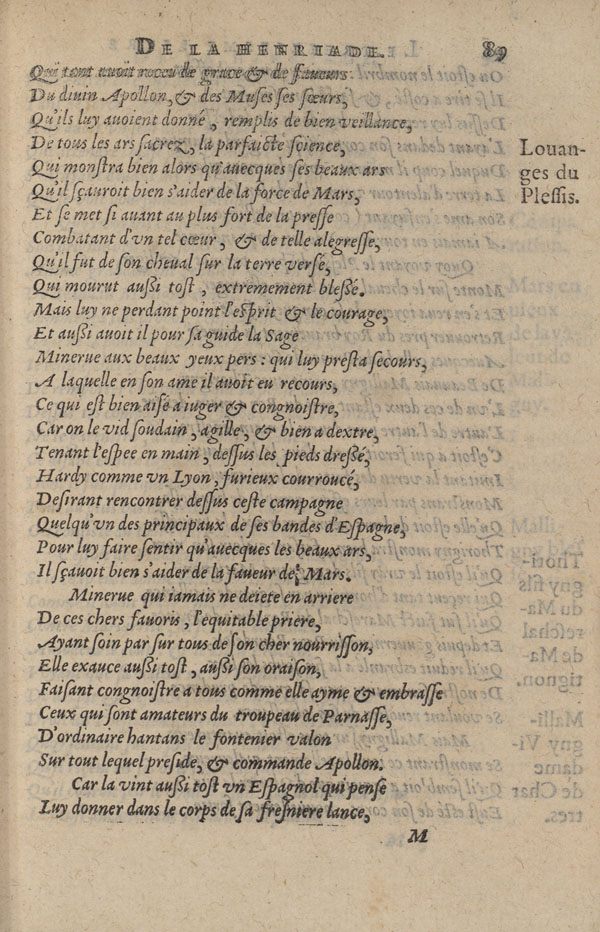 DE LA HENRIADE. 89
Qui tant auoit receu de grace & de faueurs
Du diuin Apollon, & des Muses ses sœurs,
Qu'ils luy auoient donné, remplis de bien veillance,
De tous les ars sacrez, la parfaicte science,
Qui monstra bien alors qu'auecques ses beaux ars
Qu'il sçauroit bien s'aider de la force de Mars,
Louan-
ges du
Plessis.
Et se met si auant au plus fort de la presse
Combatant d'vn tel cœur, & de telle alegresse,
Qu'il fut de son cheual sur la terre versé,
Qui mourut außi tost, extremement bleßé.
Mais luy ne perdant point l'esprit & le courage,
Et außi auoit il pour sa guide la Sage
Minerue aux beaux yeux pers : qui luy presta secours,
A laquelle en son ame il auoit eu recours,
Ce qui est bien aisé a iuger & congnoistre,
Car on le vid soudain, agille, & bien a dextre,
Tenant l'espee en main, dessus les pieds dressé,
Hardy comme vn Lyon, furieux courroucé,
Desirant rencontrer dessus ceste campagne
Quelqu'vn des principaux de ses bandes d'Espagne,
Pour luy faire sentir qu'auecques les beaux ars,
Il sçauoit bien s'aider de la faueur de Mars.
Minerue qui iamais ne deiete en arriere
De ces chers fauoris, l'equitable priere,
Ayant soin par sur tous de son cher nourrisson,
Elle exauce außi tost, außi son oraison,
Faisant congnoistre a tous comme elle ayme & embrasse
Ceux qui sont amateurs du troupeau de Parnasse,
D'ordinaire hantans le fontenier valon
Sur tout lequel preside, & commande Apollon.
Car la vint außi tost vn Espagnol qui pense
Luy donner dans le corps de sa fresniere lance,
M